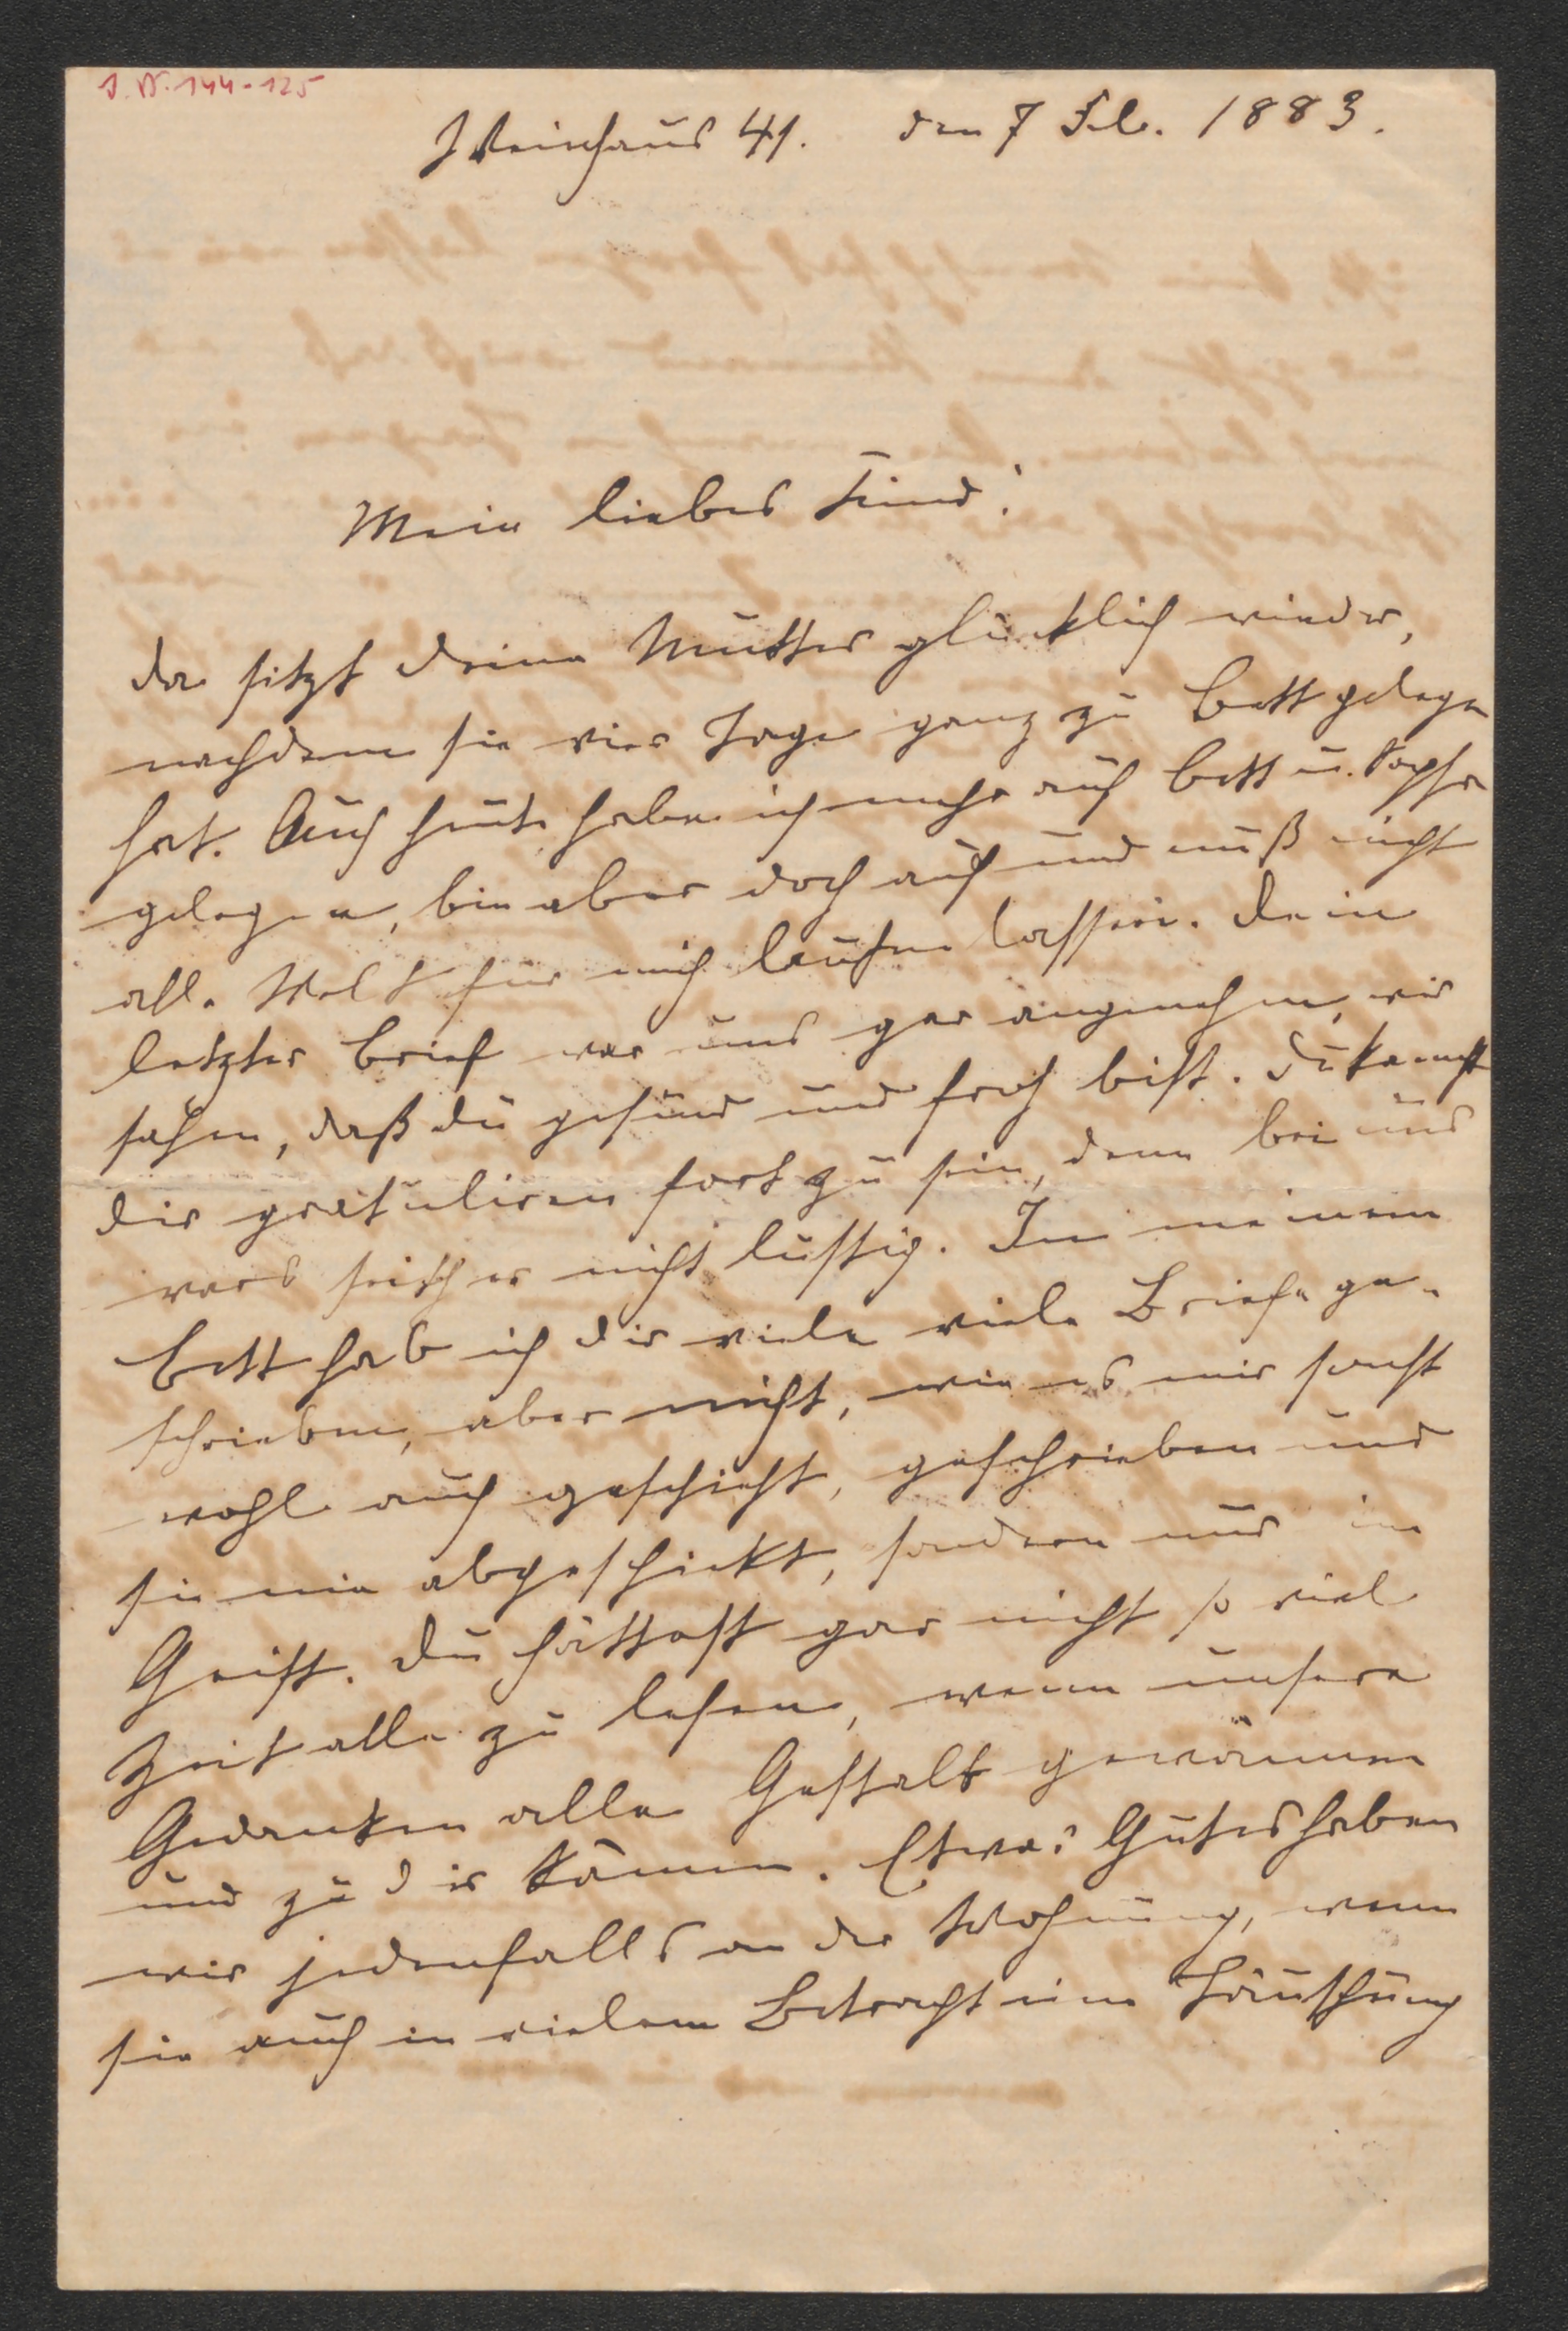 I.N. 144-125
Weinhaus 41. den 7 Feb. 1883.
Mein liebes Kind!
da sitzt deine Mutter glücklich wieder,
nachdem sie vier Tage ganz zu Bett gelegen
hat. Auch heute habe ich mehr auf Bett u. Sopha
gelegen, bin aber doch auf und muß nicht
alle Welt für mich laufen lassen. Dein
letzter Brief war uns gar angenehm, wir
sahen, daß du gesund und froh bist. Du kannst
dir gratuliren fort zu sein, denn bei uns
wars seither nicht lustig. In meinem
Bett hab ich dir viele viele Briefe ge-
schrieben, aber nicht, wie es mir sonst
wohl auch geschieht, geschrieben und
sie nie abgeschickt, sondern nur im
Geist. Du hättest gar nicht so viel
Zeit alle zu lesen, wenn unsere
Gedanken alle Gestalt gewännen
und zu dir kämen. Etwas Gutes haben
wir jedenfalls an der Wohnung, wenn
sie auch in vielem Betracht eine Täuschung